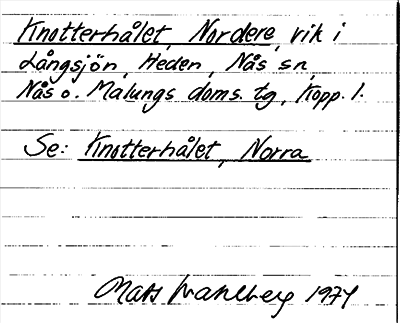 Knotterhålet, Nordere, vik i
Långsjön, Heden, Nås sn,
Nås o. Malungs doms. tg, Kopp. l.
Se: Knotterhålet, Norra
Mats Wahlberg 1974